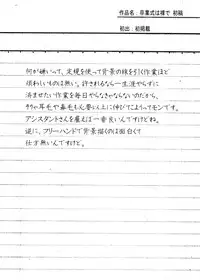 作品名:卒業式は裸で 初稿
初出:初掲載
何が嫌いって、定規を使って背景の線を引く作業ほど
煩わしいものは無い。許されるなら一生涯やらずに
済ませたい作業を毎日やらなきゃならないのだから、
タラの耳毛や鼻毛も心憂じ人上に伸びてこようってモンです。
アシスタントさんを雇えば一番良いんですけどね。
逆に、フリーハンドで背景描くのは面白くて
仕方無いんですけど。